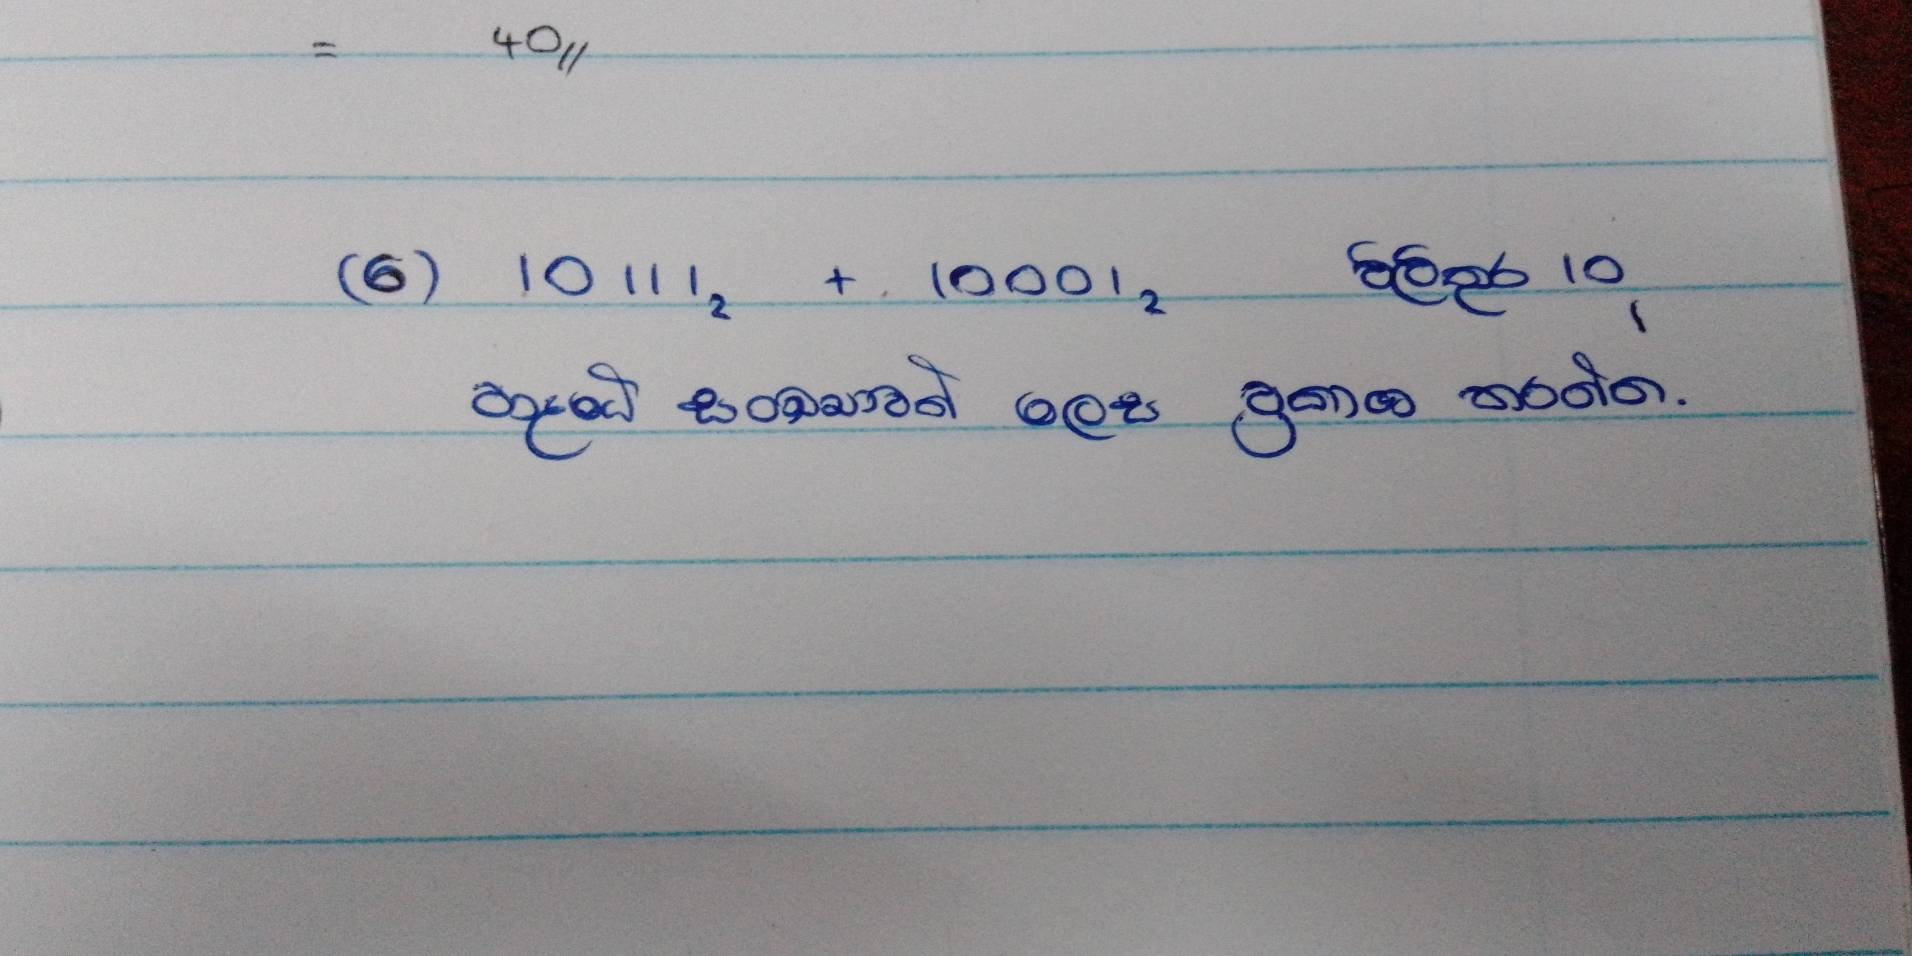 = 40//
(6) 10111₂ + 10001₂ පිළිතුර 10,
පාදයේ සංඛ්‍යාවක් ලෙස ප්‍රකාශ කරන්න.